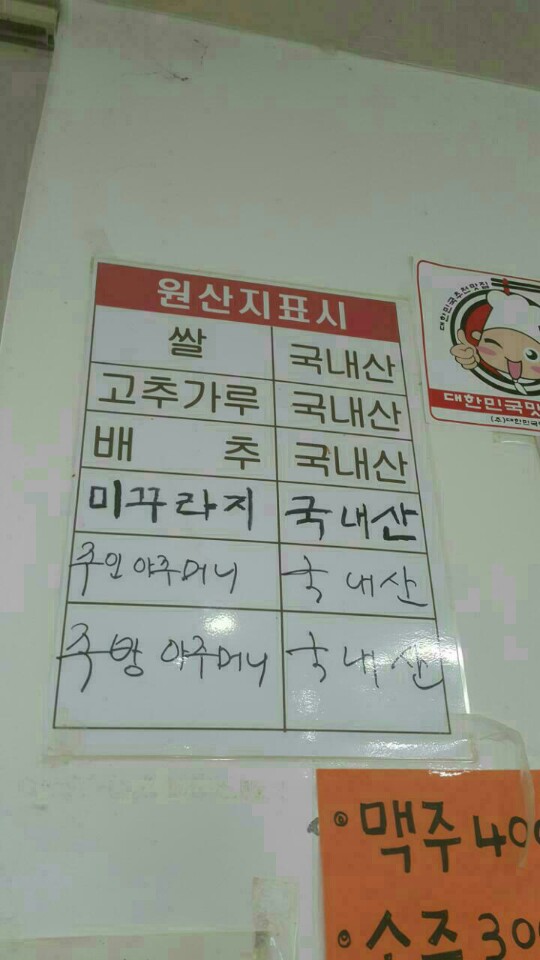 원산지표시
쌀 국내산
고추가루 국내산
배 추 국내산
미꾸라지 국내산
주인 아주머니 국내산
주방 아주머니 국내산
대한민국추천맛집
대한민국맛
(주)대한민국
맥주 400
소주 300